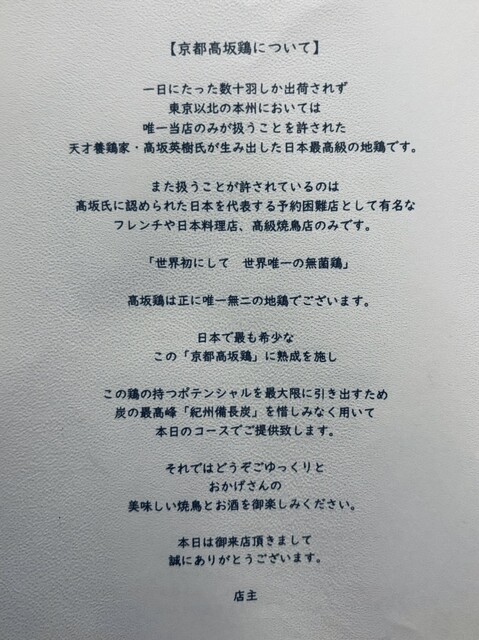 【京都高坂鶏について】
一日にたった数十羽しか出荷されず
東京以北の本州においては
唯一当店のみが扱うことを許された
天才養鶏家・高坂英樹氏が生み出した日本最高級の地鶏です。
また扱うことが許されているのは
高坂氏に認められた日本を代表する予約困難店として有名な
フレンチや日本料理店、高級焼鳥店のみです。
「世界初にして　世界唯一の無菌鶏」
高坂鶏は正に唯一無二の地鶏でございます。
日本で最も希少な
この「京都高坂鶏」に熟成を施し
この鶏の持つポテンシャルを最大限に引き出すため
炭の最高峰「紀州備長炭」を惜しみなく用いて
本日のコースでご提供致します。
それではどうぞごゆっくりと
おかげさんの
美味しい焼鳥とお酒を御楽しみください。
本日は御来店頂きまして
誠にありがとうございます。
店主